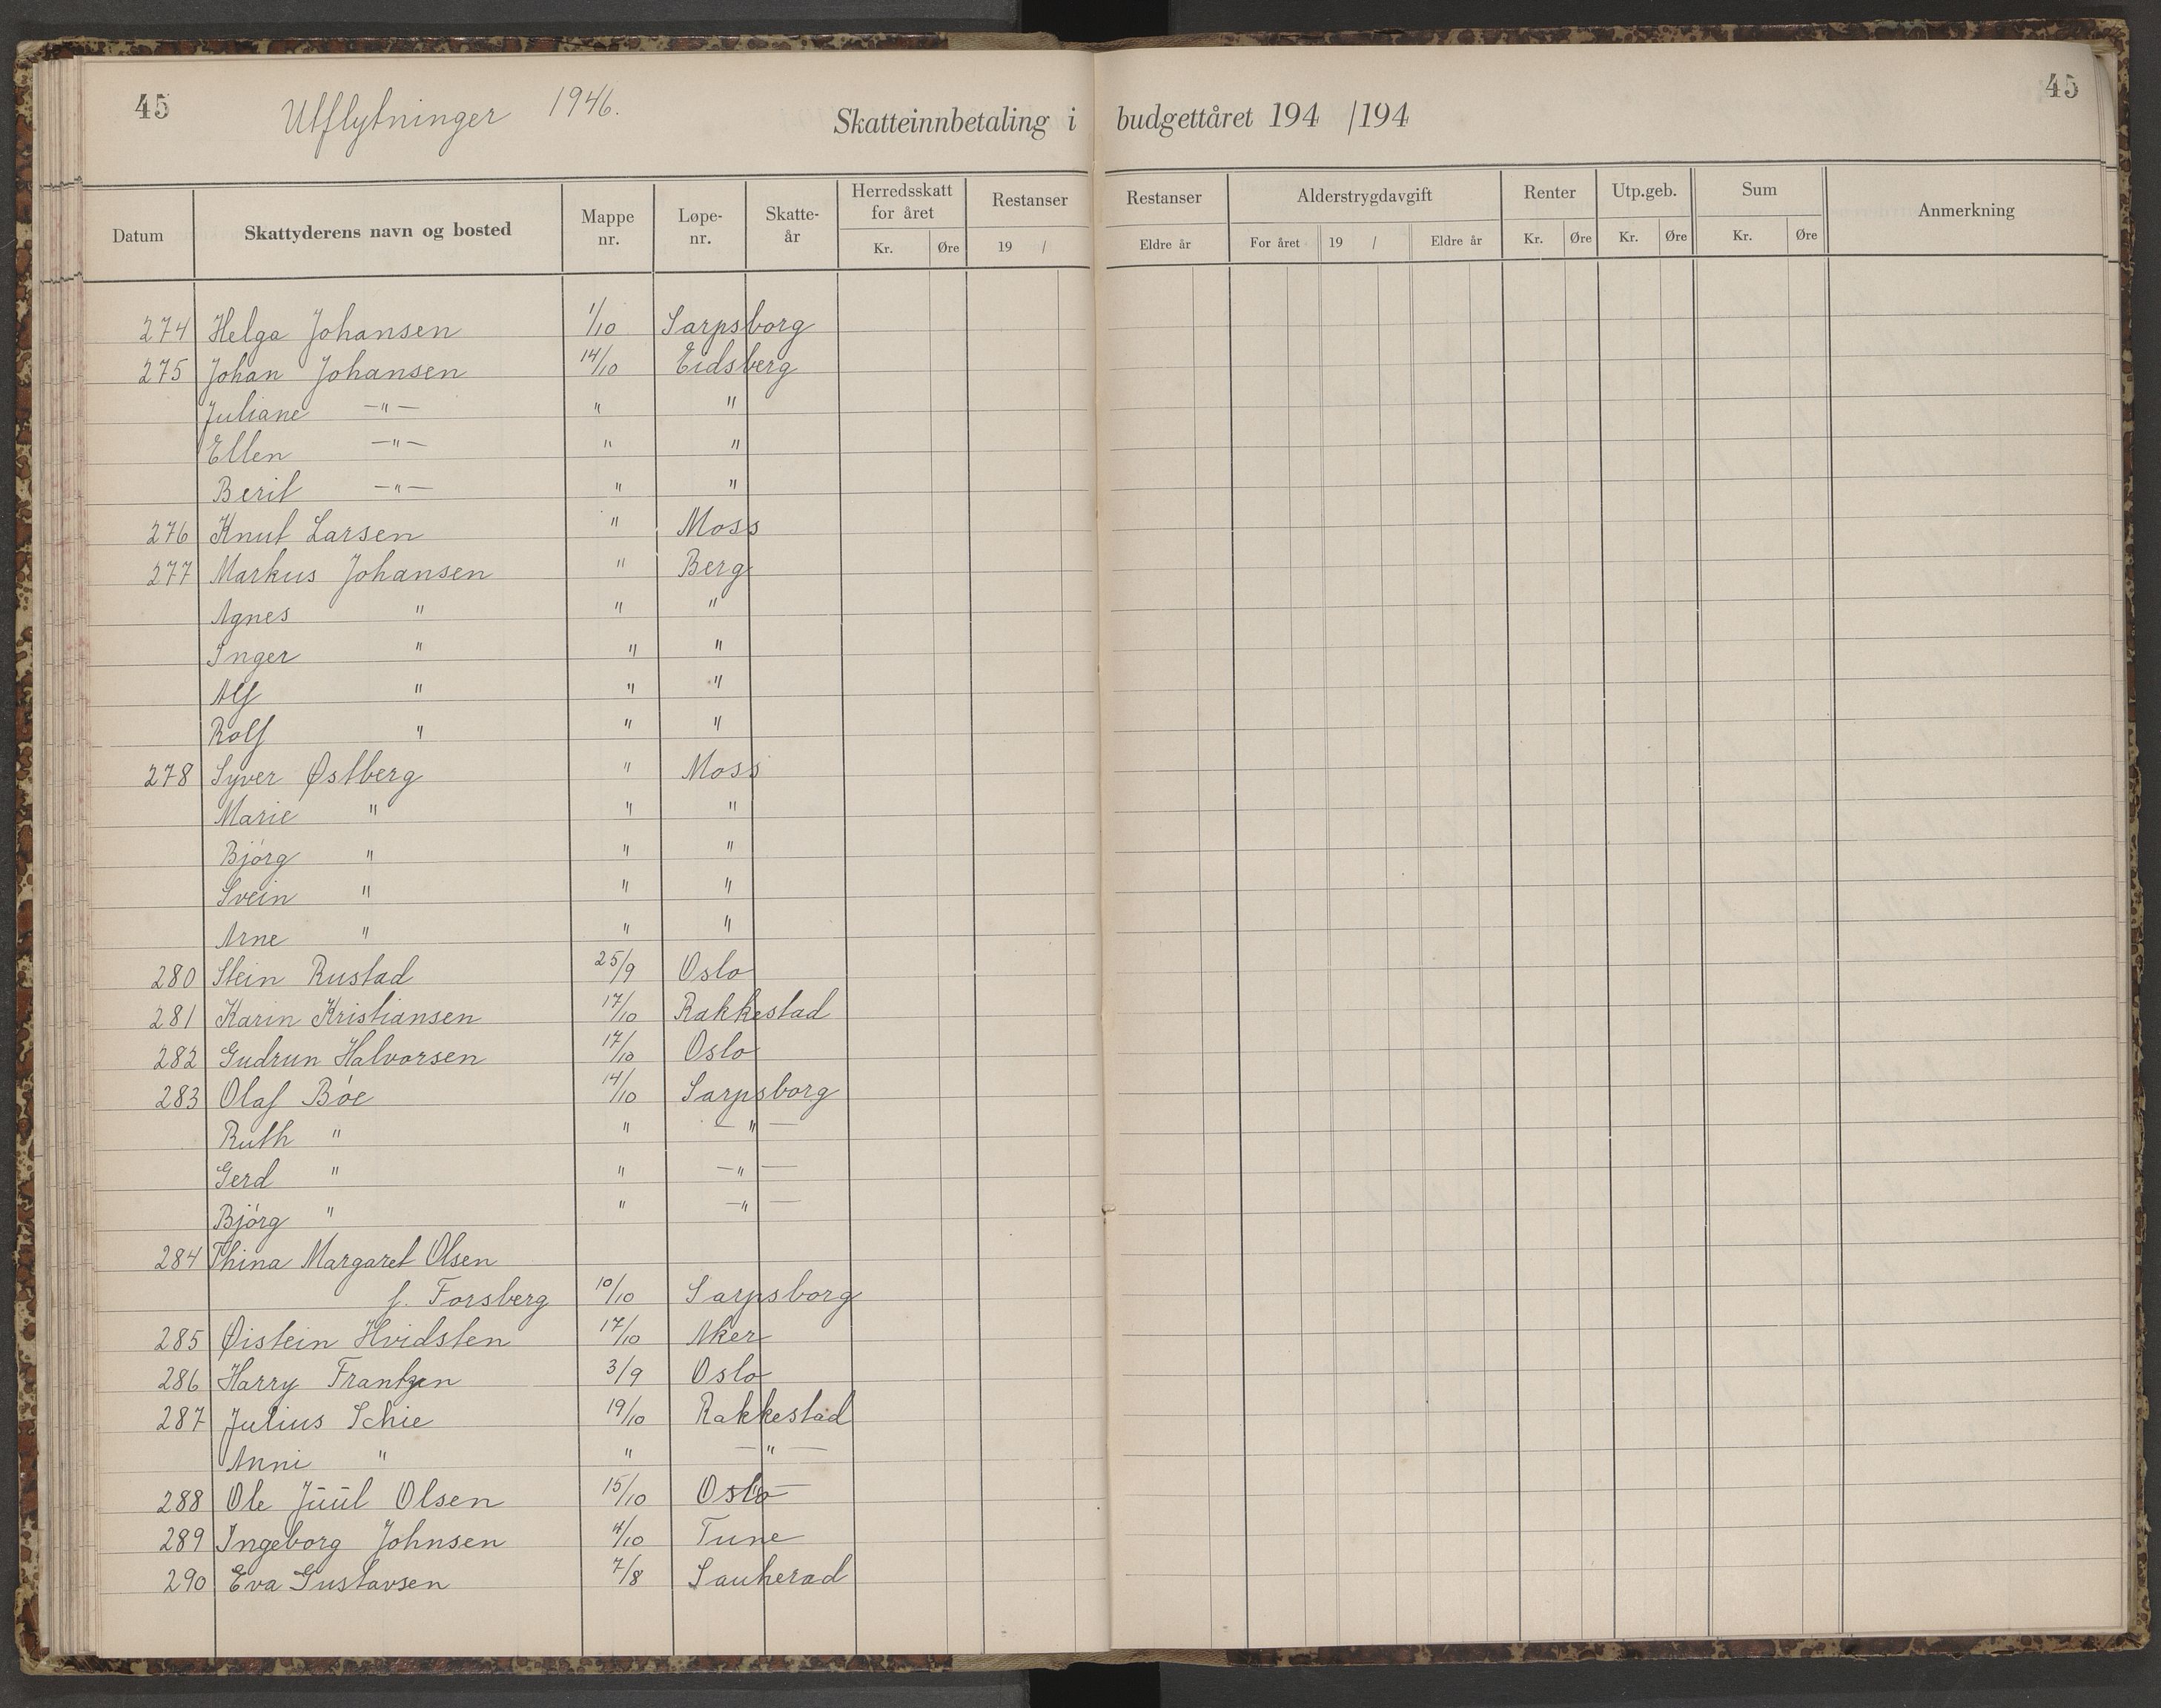 45 Utflytninger 1946. 45
Skatteinnbetaling i budgettåret 194 /194
Datum Skattyderens navn og bosted Mappe nr. Løpe-nr. Skatte-år Herredsskatt for året Kr. Øre Restanser 19 / Restanser Eldre år Alderstrygdavgift For året 19 / Eldre år Renter Kr. Øre Utp.geb. Kr. Øre Sum Kr. Øre Anmerkning
274 Helga Johansen 1/10 Sarpsborg
275 Johan Johansen 14/10 Eidsberg
Juliane —"— " "
Ellen —"— " "
Berit —"— " "
276 Knut Larsen " Moss
277 Markus Johansen " Berg
Agnes " " "
Inger " " "
Alf " " "
Rolf " " "
278 Syver Østberg " Moss
Marie " " "
Bjørg " " "
Svein " " "
Arne " " "
280 Stein Rustad 25/9 Oslo
281 Karin Kristiansen 17/10 Rakkestad
282 Gudrun Halvorsen 17/10 Oslo
283 Olaf Bóe 14/10 Sarpsborg
Ruth " " —"—
Gerd " " —"—
Bjórg " " —"—
284 Thina Margaret Olsen
f. Forsberg 10/10 Sarpsborg
285 Øistein Hvidsten 17/10 Aker
286 Harry Frantzen 3/9 Oslo
287 Julius Schie 19/10 Rakkestad
Anni " " —"—
288 Ole Juul Olsen 15/10 Oslo
289 Ingeborg Johnsen 4/10 Tune
290 Eva Gustavsen 7/8 Sauherad